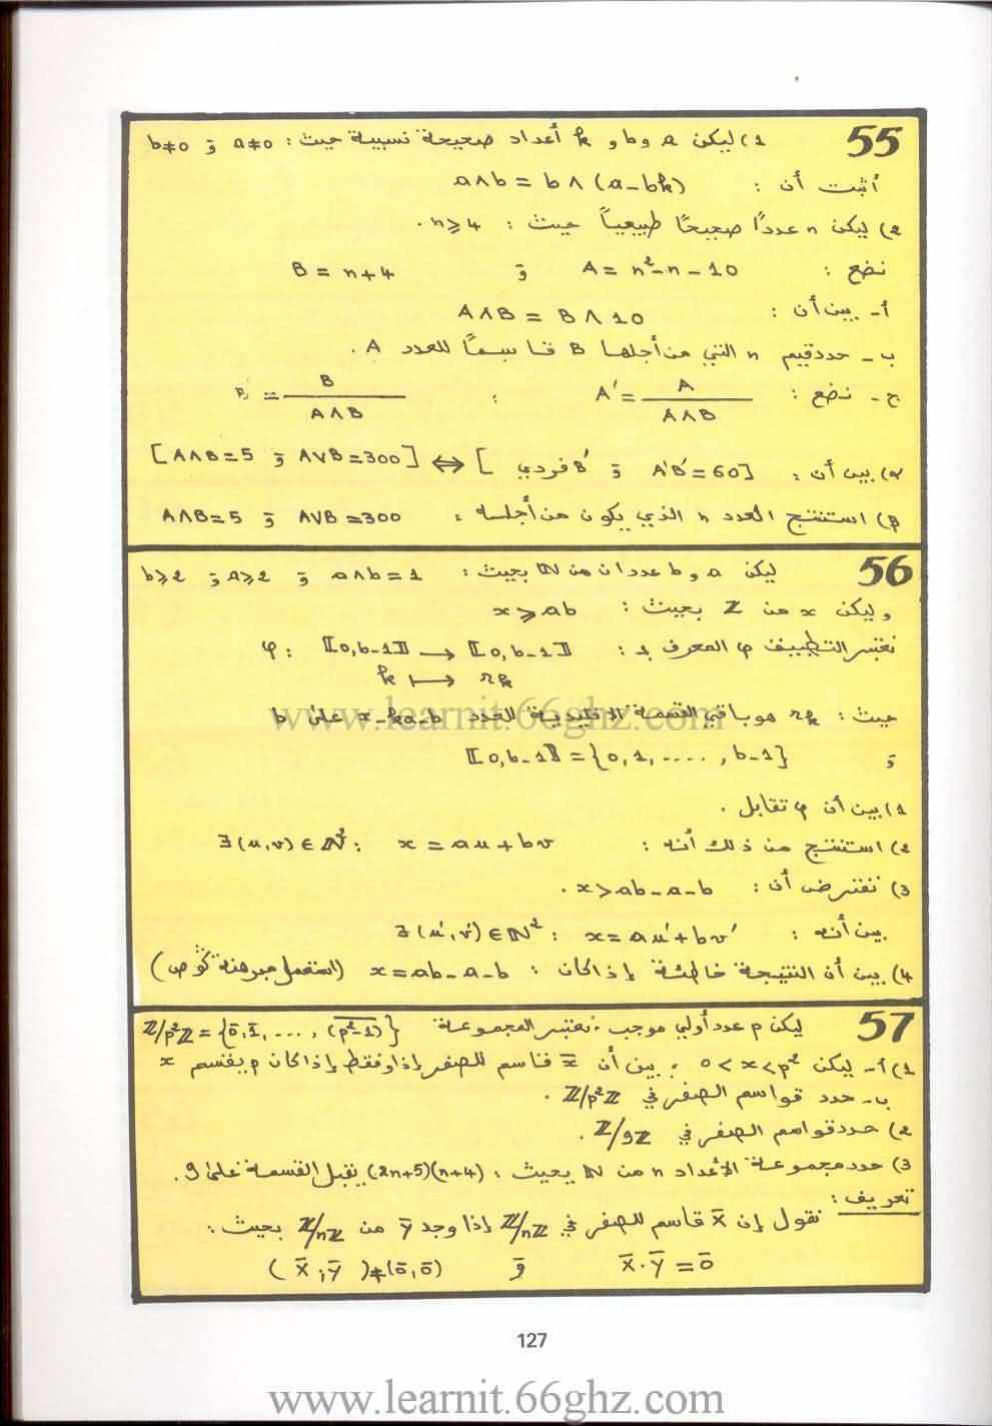 55
1) ليكن a و b و k أعداد صحيحة نسبية حيث : a≠0 و b≠0
أثبت أن : a∧b = b∧(a-bk)
2) ليكن n عددًا صحيحًا طبيعياً حيث : n≥4 .
نضع : A = n²-n-10 و B = n+4
أ- بين أن : A∧B = B∧10
ب- حدد قيم n التي من أجلها B قاسمًا للعدد A .
ج- نضع : A' = A/(A∧B) ; B' = B/(A∧B)
α) بين أن : [A'B'=60 و B' فردي] ⇔ [A∧B=5 و A∨B=300]
β) استنتج العدد n الذي يكون من أجله : A∨B=300 و A∧B=5
56
ليكن a و b عددان من ℕ بحيث : a∧b=1 و a≥2 و b≥2
وليكن x من Z بحيث : x≥ab
نعتبر التطبيق φ المعرف بـ : φ : ⟦0,b-1⟧ → ⟦0,b-1⟧
k ⟼ rk
حيث : rk هو باقي القسمة الاقليدية للعدد x-ka-b على b
و ⟦0,b-1⟧ = {0,1,....,b-1}
1) بين أن φ تقابل .
2) استنتج من ذلك أنه : ∃(u,v)∈ℕ² : x = au+bv
3) نفترض أن : x>ab-a-b .
بين أنه : ∃(u',v')∈ℕ² : x = au'+bv'
4) بين أن النتيجة خاطئة إذا كان : x=ab-a-b (استعمل مبرهنة گوص)
57
ليكن p عدد أولي موجب . نعتبر المجموعة ℤ/p²ℤ = {0̄,1̄,...,(p²-1)‾}
1) أ- ليكن 0<x<p² ; بين أن x̄ قاسم للصفر إذا وفقط إذا كان p يقسم x
ب- حدد قواسم الصفر في ℤ/p²ℤ .
2) حدد قواسم الصفر في ℤ/9ℤ .
3) حدد مجموعة الأعداد n من ℕ بحيث : (2n+5)(n+4) يقبل القسمة على 9.
تعريف :
نقول إن x̄ قاسم للصفر في ℤ/nℤ إذا وجد ȳ من ℤ/nℤ بحيث :
x̄.ȳ = 0̄ و (x̄ ; ȳ)≠(0̄,0̄)
127
www.learnit.66ghz.com
www.learnit.66ghz.com